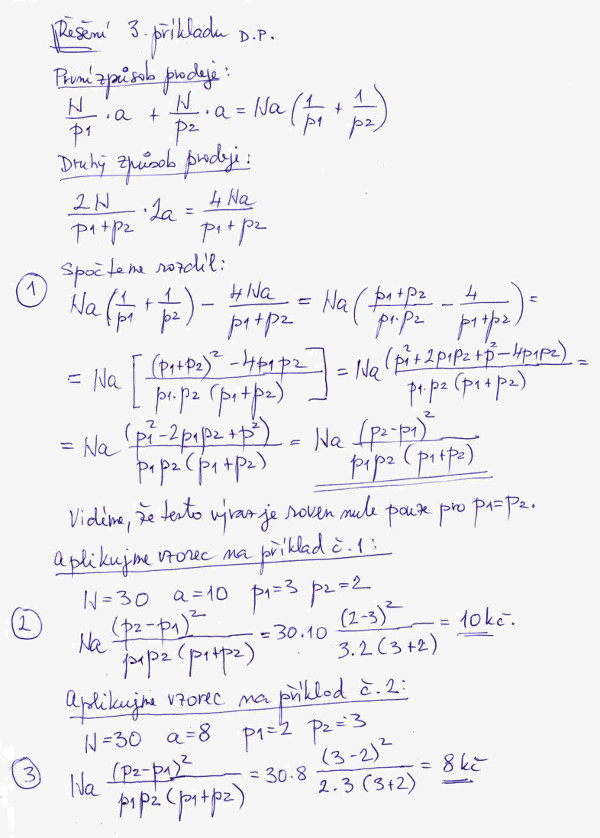 Řešení 3. příkladu D.P.
První způsob prodeje:
N/p1 · a + N/p2 · a = Na(1/p1 + 1/p2)
Druhý způsob prodeje:
2N/(p1+p2) · 2a = 4Na/(p1+p2)
Spočteme rozdíl:
① Na(1/p1 + 1/p2) - 4Na/(p1+p2) = Na((p1+p2)/(p1·p2) - 4/(p1+p2)) =
= Na[((p1+p2)² - 4p1p2)/(p1·p2(p1+p2))] = Na(p1²+2p1p2+p²-4p1p2)/(p1·p2(p1+p2)) =
= Na(p1²-2p1p2+p²)/(p1p2(p1+p2)) = Na(p2-p1)²/(p1p2(p1+p2))
Vidíme, že tento výraz je roven nule pouze pro p1=p2.
Aplikujme vzorec na příklad č.1:
N=30 a=10 p1=3 p2=2
② Na(p2-p1)²/(p1p2(p1+p2)) = 30.10 (2-3)²/(3.2(3+2)) = 10kč.
Aplikujme vzorec na příklad č.2:
N=30 a=8 p1=2 p2=3
③ Na(p2-p1)²/(p1p2(p1+p2)) = 30.8 (3-2)²/(2.3(3+2)) = 8kč